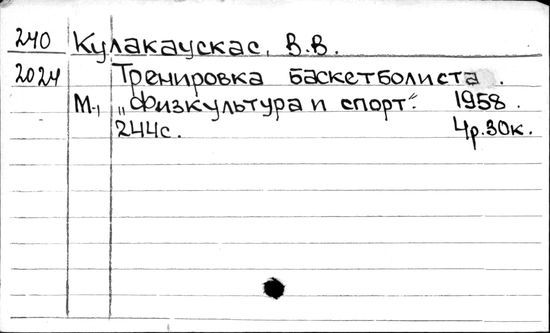 240 Кулакаускас, В.В.
2024 Тренировка баскетболиста.
М., „Физкультура и спорт". 1958.
244с. 4р.30к.